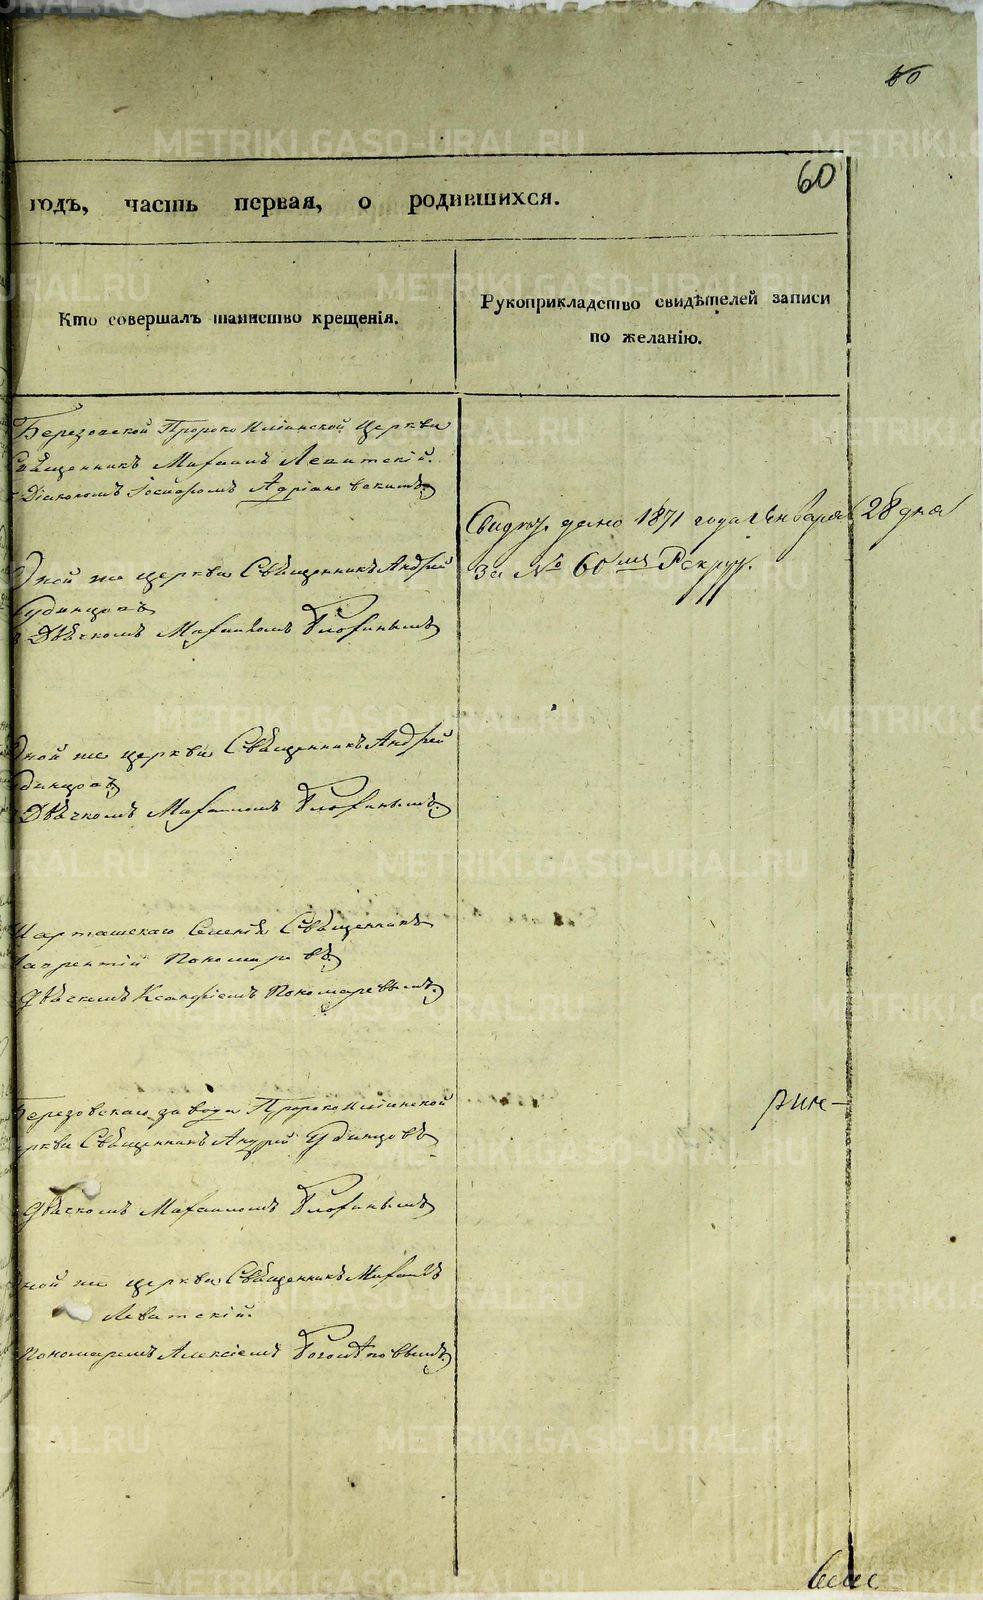 60
60
годъ, часть первая, о родившихся.
Кто совершалъ таинство крещенія.
Рукоприкладство свидѣтелей записи
по желанію.
Березовской Пророко Ильинской Церкви
Священникъ Михаилъ Левитскій.
Діакономъ Адріановскимъ
Свидѣт. дано 1871 года Января 28 дня
За № 60 мъ Рекрут.
же церкви Священникъ Андрей
Удинцовъ
Дьячкомъ Михаиломъ
же церкви Священникъ Андрей
Удинцовъ
Дьячкомъ Михаиломъ
Шарташскаго Селенія Священникъ
Лаврентій Пономаревъ
Дьячкомъ Пономаревымъ
Березовскаго завода Пророко Ильинской
церкви Священникъ Андрей Удинцовъ
Дьячкомъ Михаиломъ
же церкви Священникъ Михаилъ
Левитскій.
Пономаремъ Алексіемъ
METRIKI.GASO-URAL.RU